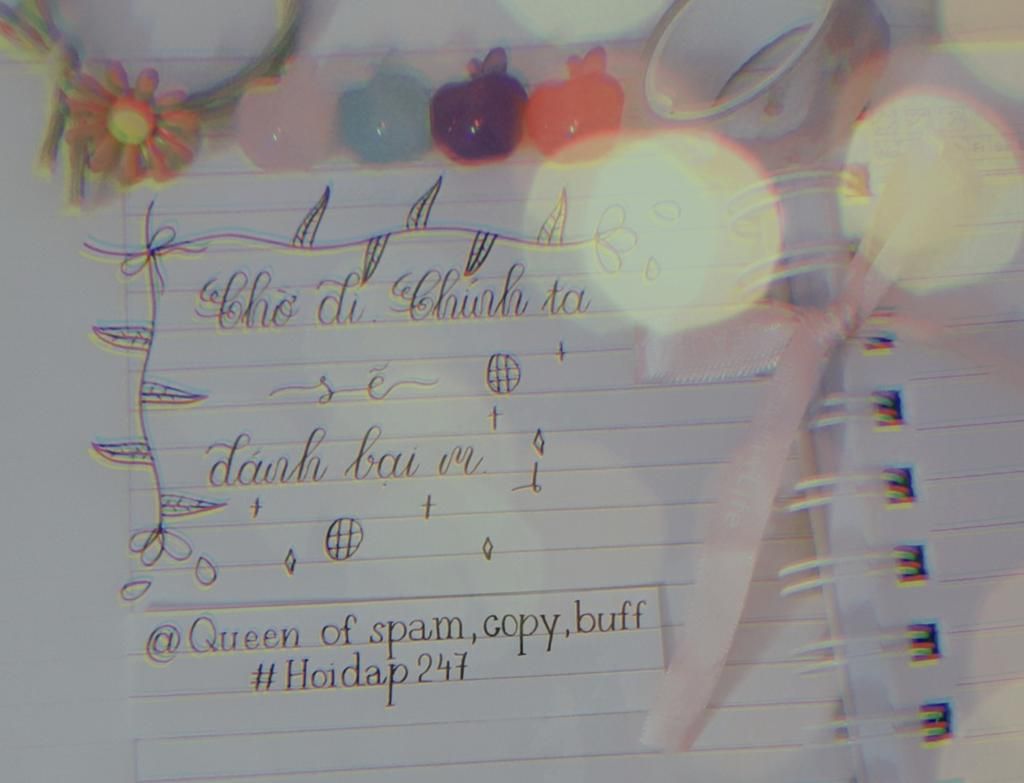 Chờ đi. Chính ta
~ sẽ ~
đánh bại m.
@Queen of spam, copy, buff
#Hoidap247
Life